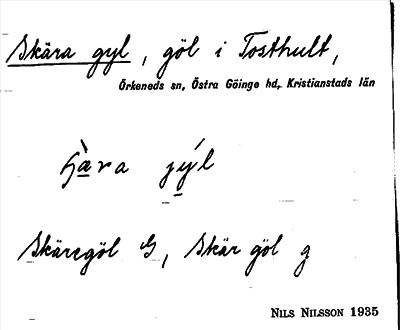 Skära gyl, göl i Tosthult,
Örkeneds sn, Östra Göinge hd, Kristianstads län
jýl
Skäregöl G, Skär göl g
NILS NILSSON 1935